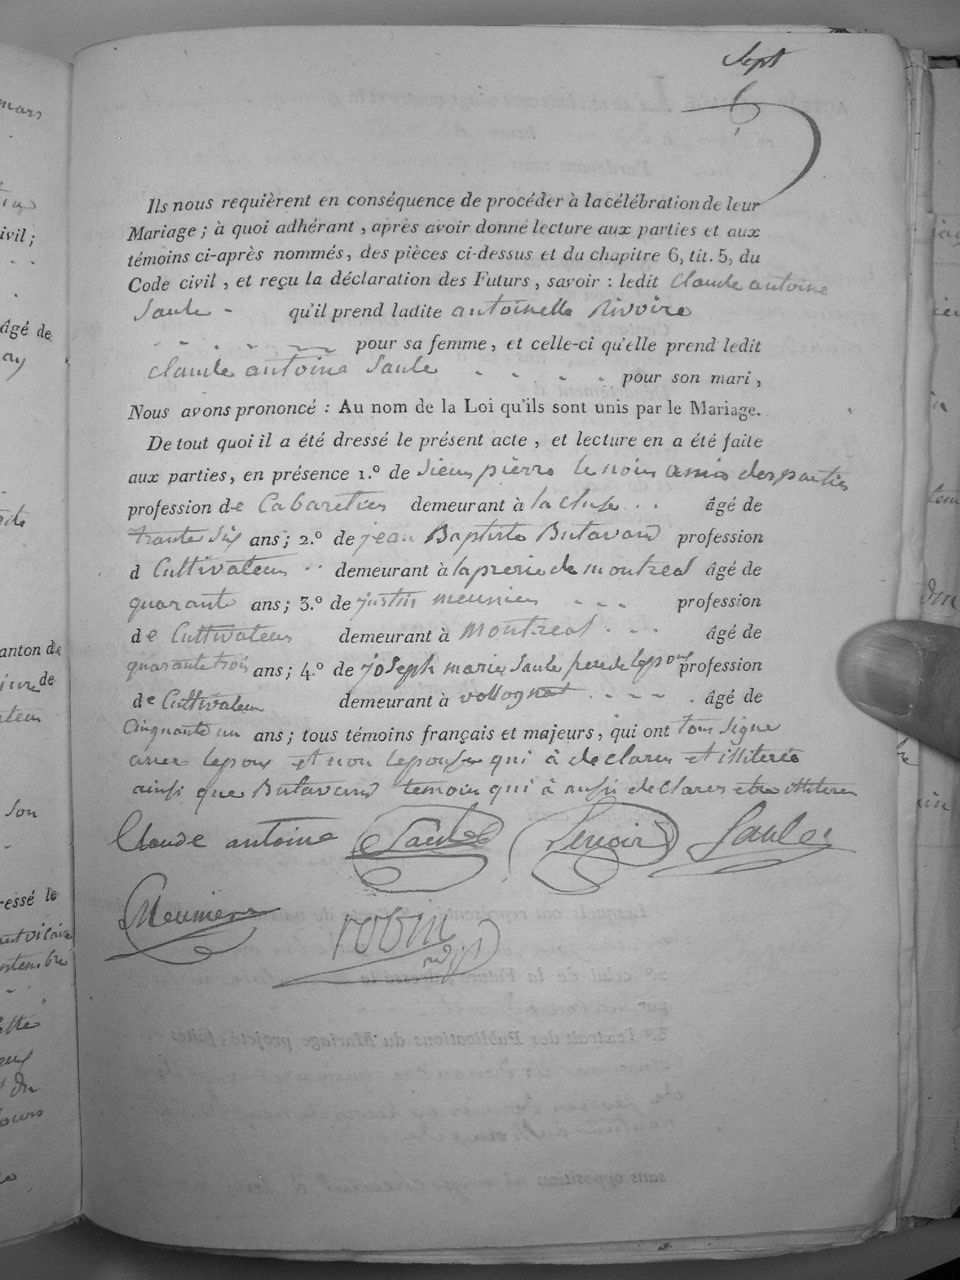 Sept
6
Ils nous requièrent en conséquence de procéder à la célébration de leur
Mariage ; à quoi adhérant , après avoir donné lecture aux parties et aux
témoins ci-après nommés, des pièces ci-dessus et du chapitre 6, tit. 5, du
Code civil , et reçu la déclaration des Futurs , savoir : ledit Claude antoine
Saule - qu'il prend ladite antoinette Rivoire
pour sa femme, et celle-ci qu'elle prend ledit
Claude antoine Saule pour son mari ,
Nous avons prononcé : Au nom de la Loi qu'ils sont unis par le Mariage.
De tout quoi il a été dressé le présent acte , et lecture en a été faite
aux parties, en présence 1.º de Sieur pierre le noir amis des parties
profession de Cabaretier demeurant à la Cluse âgé de
trante Six ans ; 2.º de jean Baptiste Butavand profession
d Cultivateur demeurant à laprerie de montreal âgé de
quarante ans ; 3.º de justin meunier profession
de Cultivateur demeurant à Montreal âgé de
quarante trois ans ; 4.º de joseph marie Saule pere de lepoux profession
de Cultivateur demeurant à vollognat âgé de
Cinquante un ans ; tous témoins français et majeurs, qui ont tous signe
avec lepoux et non lepouse qui à declarer et illiterée
ainsi que Butavand temoin qui à aussi declarer etre illiterer
Claude antoine Saule Lenoir Saule
Meunier robin
mars
ivil ;
âgé de
anton de
de
son
ressé le